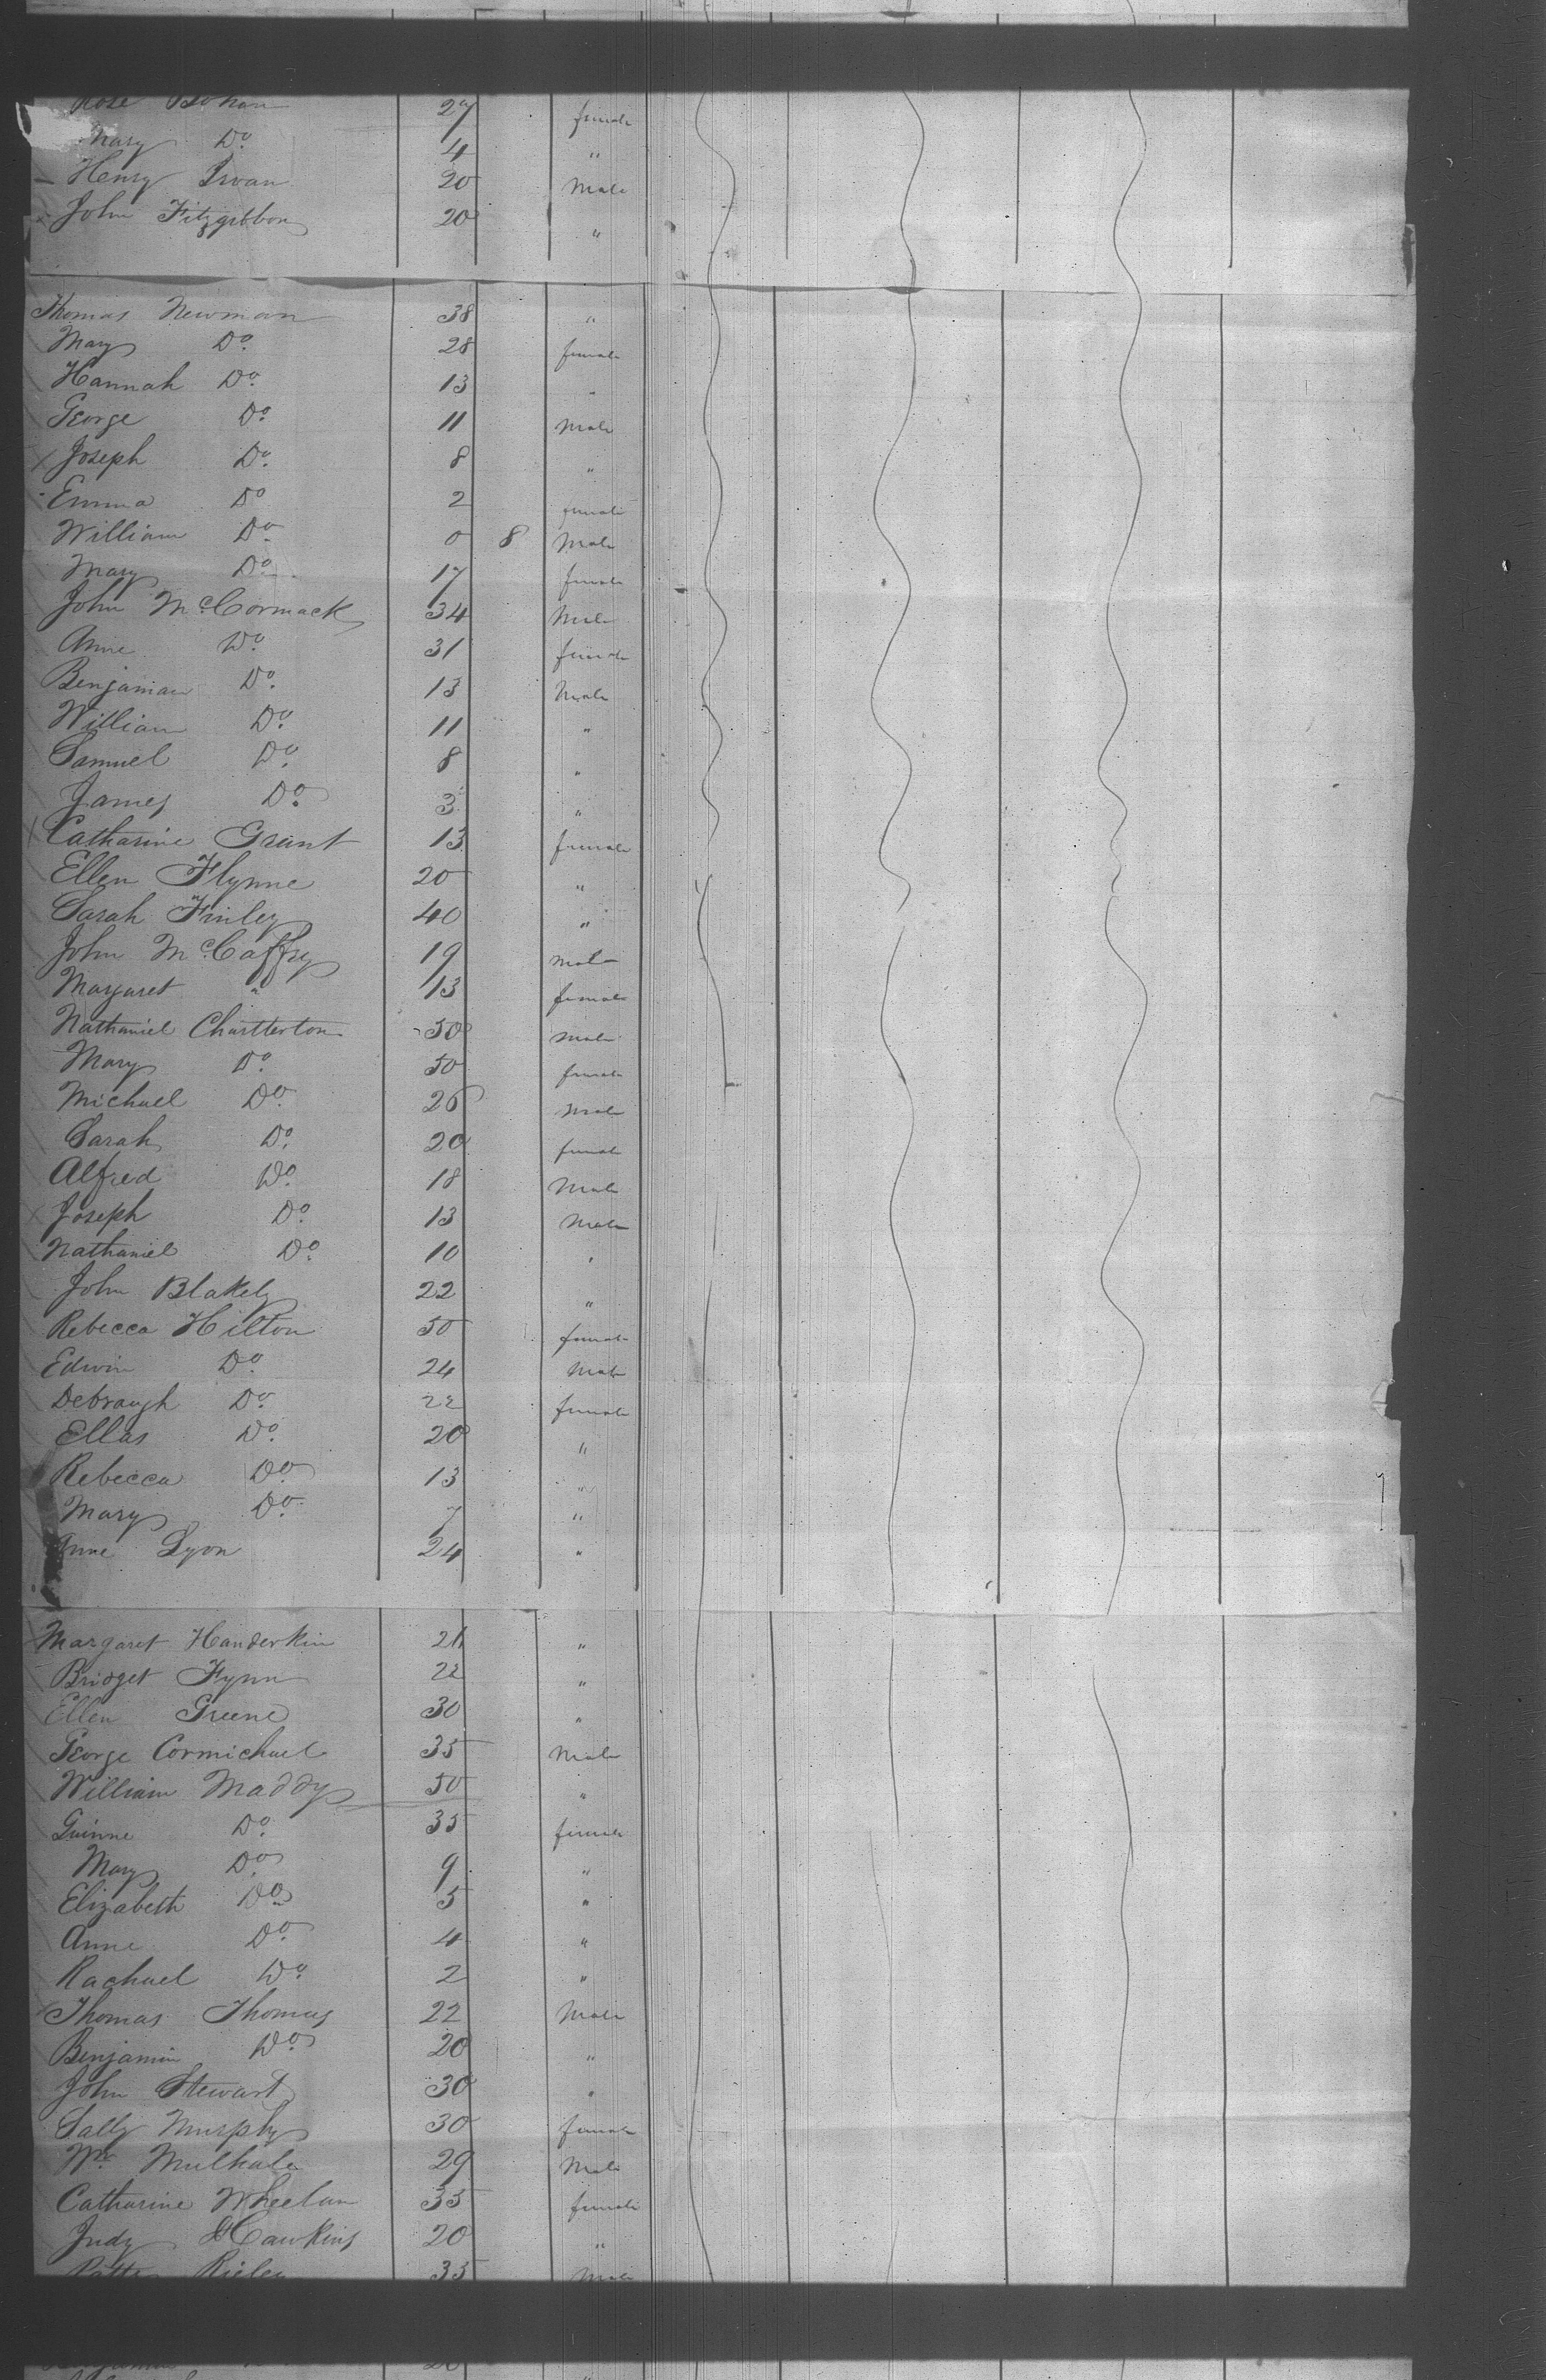 Rose Bohan 27 female
Mary Do. 4 "
Henry Swan 20 Male
John Fitzgibbon 20 "
Thomas Newman 38 "
Mary Do. 28 female
Hannah Do. 13 "
George Do. 11 Male
Joseph Do. 8 "
Emma Do 2 female
William Do. 0 8 Male
Mary Do. 17 female
John McCormack 34 Male
Anne Do. 31 female
Benjaman Do. 13 Male
William Do. 11 "
Samuel Do. 8 "
James Do. 3 "
Catharine Grant 13 female
Ellen Flynne 20 "
Sarah Finley 40 "
John McCaffry 19 Male
Margaret " 13 female
Nathaniel Chartterton 50 Male
Mary Do. 50 female
Michael Do. 26 Male
Sarah Do. 20 female
Alfred Do. 18 Male
Joseph Do. 13 Male
Nathaniel Do. 10 "
John Blakely 22 "
Rebecca Hilton 50 female
Edwin Do. 24 Male
Debraugh Do. 22 female
Ellas Do. 20 "
Rebecca Do. 13 "
Mary Do. 7 "
Anne Lyon 24 "
Margaret Handerkin 21 "
Bridget Fynn 22 "
Ellen Greene 30 "
George Cormichael 35 Male
William Maddy 50 "
Guinne Do. 35 female
Mary Do. 9 "
Elizabeth Do. 5 "
Anne Do. 4 "
Rachael Do. 2 "
Thomas Thomas 22 Male
Benjamin Do. 20 "
John Stewart 30 "
Sally Murphy 30 female
Wm. Mulhale 29 Male
Catharine Wheelan 35 female
Judy Hawkins 20 "
Rieley 35 Male